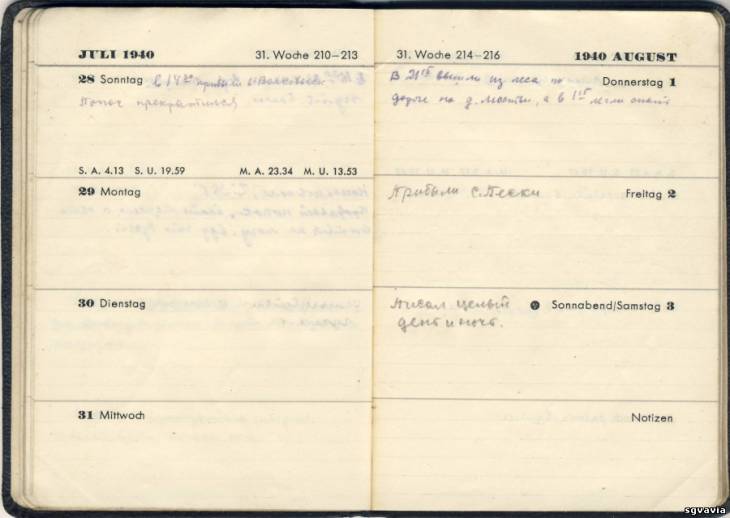 JULI 1940 31. Woche 210–213
28 Sonntag В 14 прибыли в
Понос прекратился
S. A. 4.13 S. U. 19.59 M. A. 23.34 M. U. 13.53
29 Montag
30 Dienstag
31 Mittwoch
31. Woche 214–216 1940 AUGUST
В 21 вышли из леса по Donnerstag 1
дороге на д. а в 1 легли спать
Прибыли с. Пески Freitag 2
Писал целый Sonnabend/Samstag 3
день и ночь.
Notizen
sgvavia